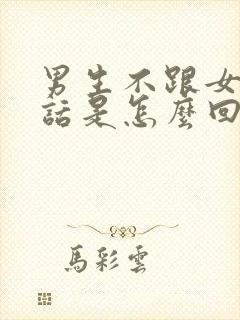 男生不跟女
話是怎麼回
馬彩雲